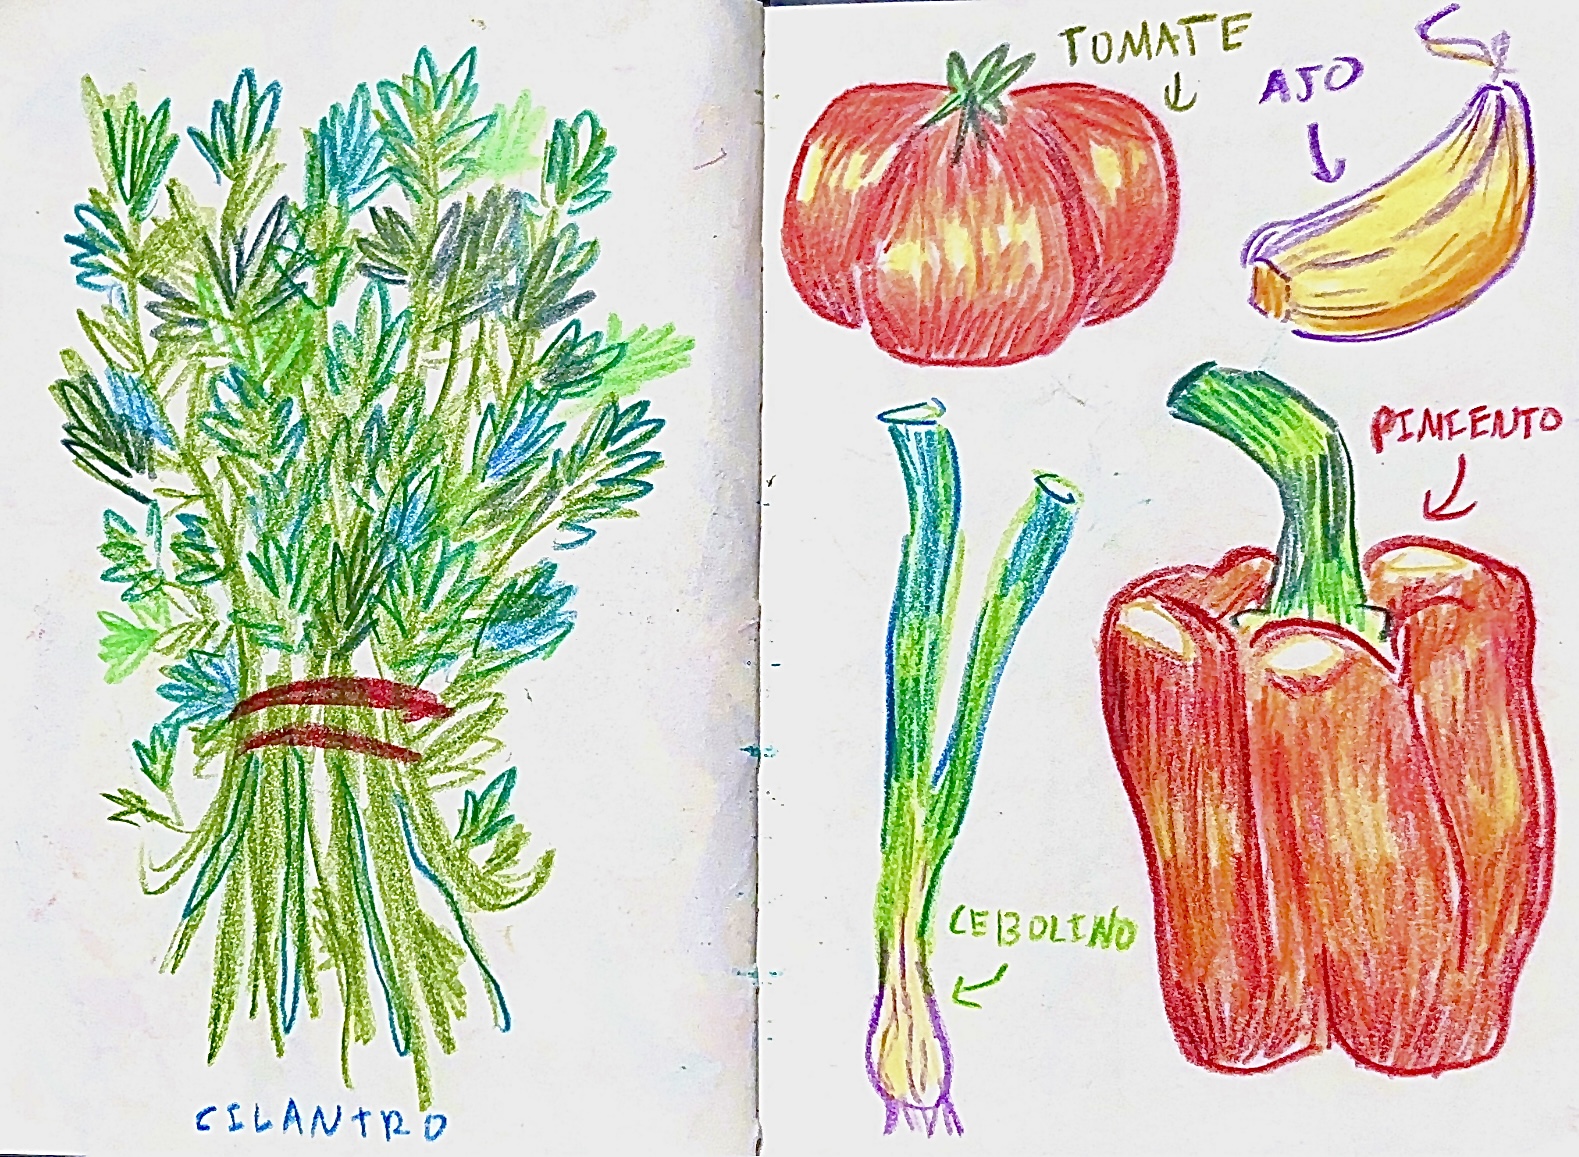 CILANTRO
TOMATE
AJO
PIMIENTO
CEBOLINO